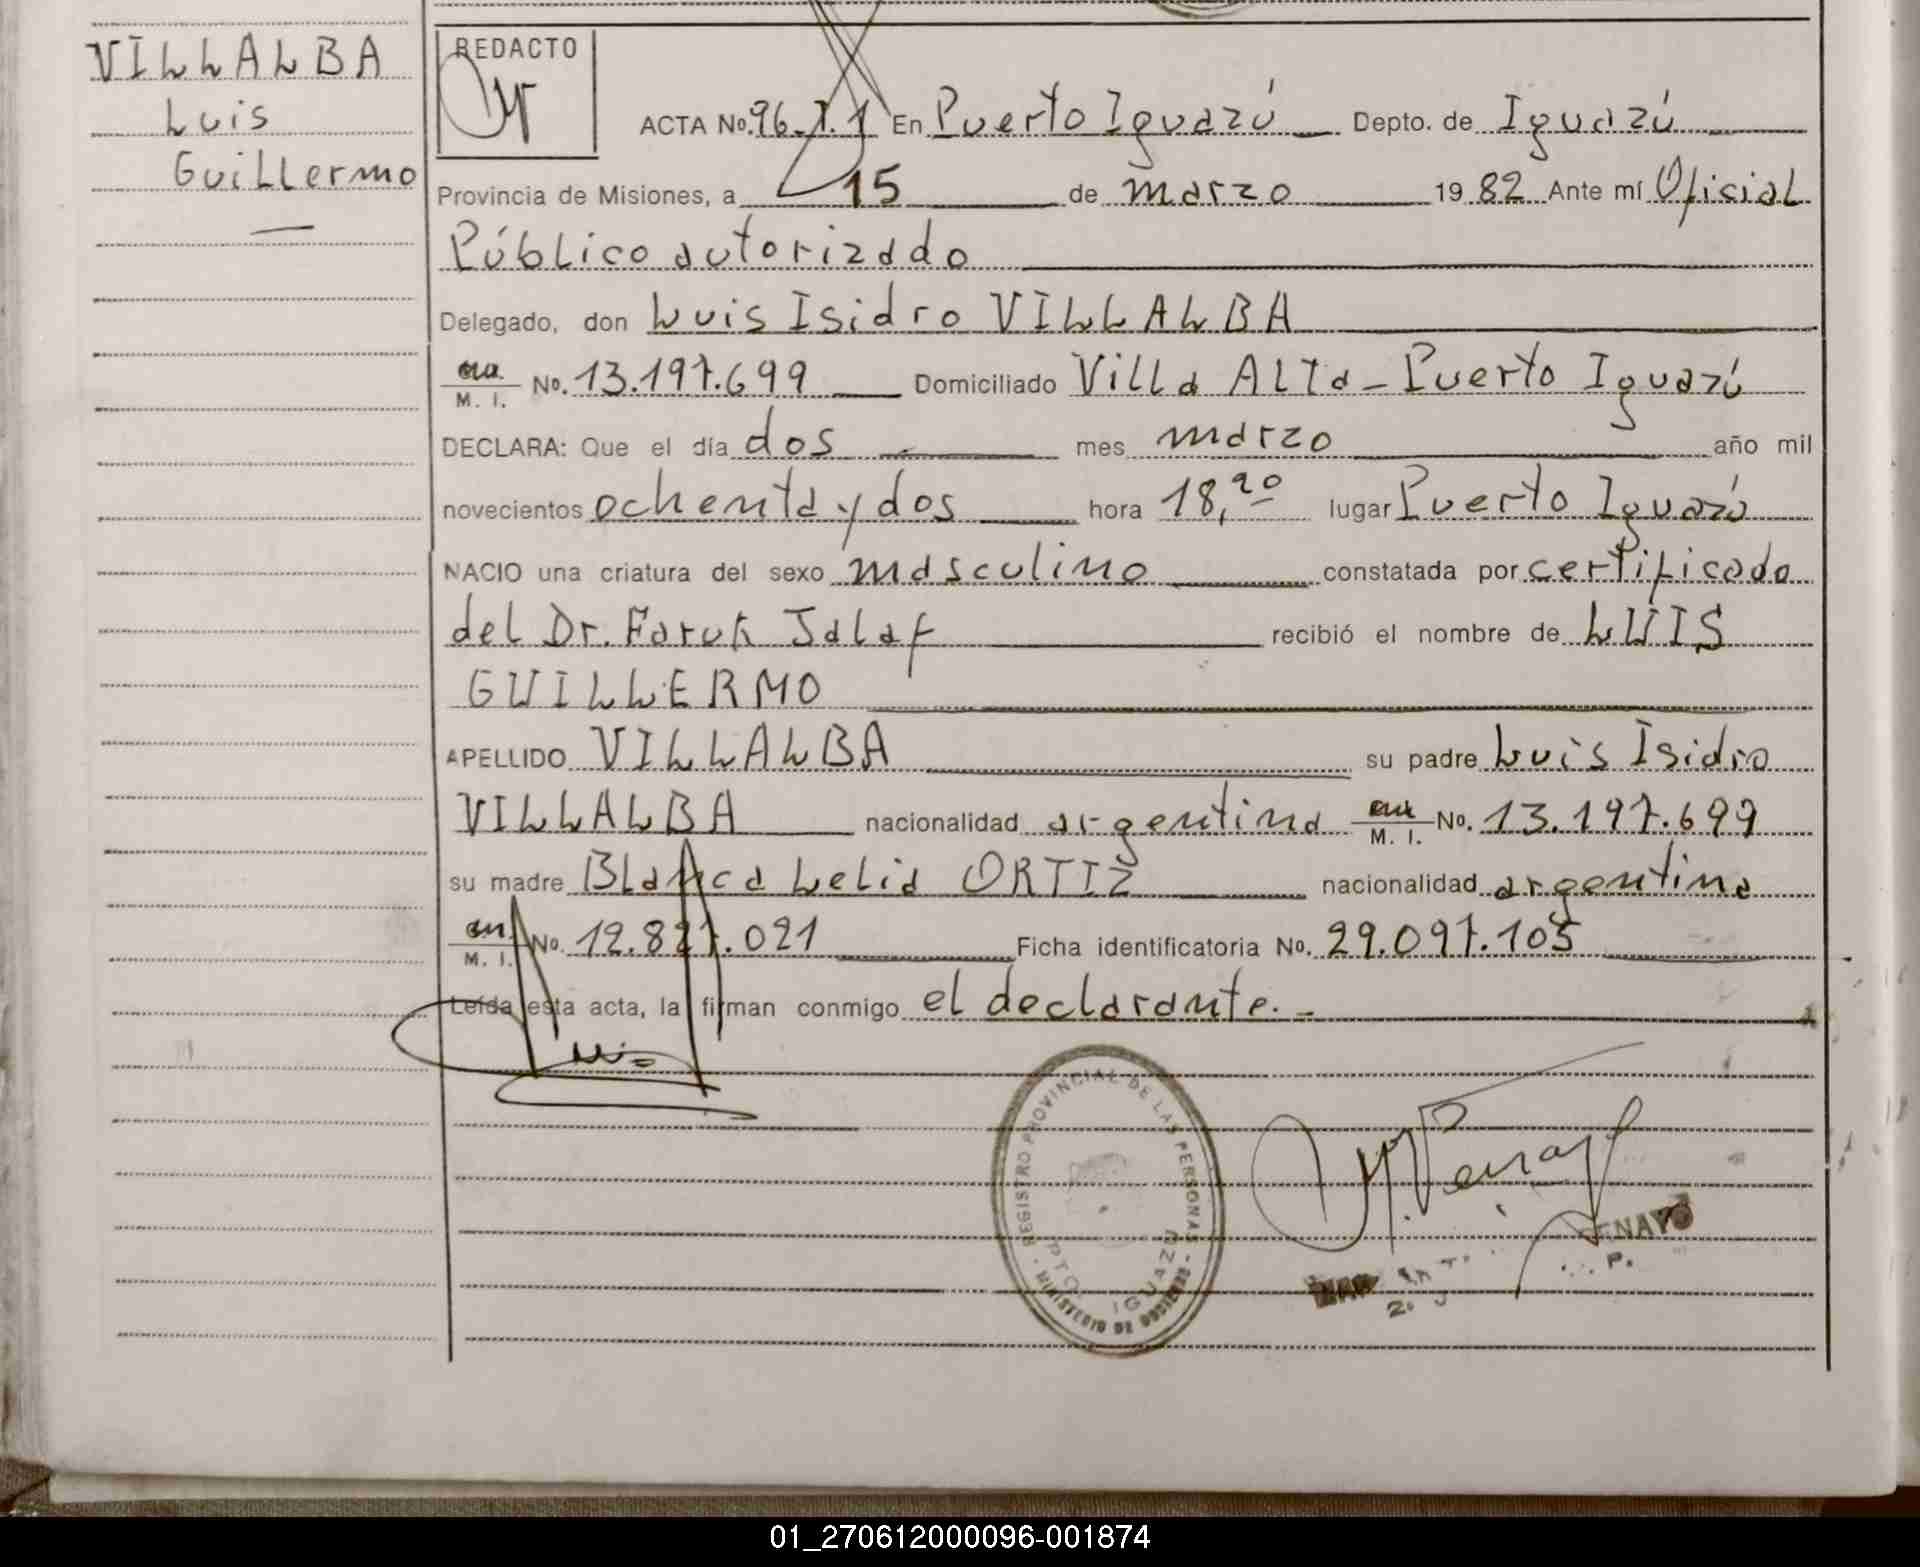 VILLALBA
Luis
Guillermo
REDACTO
ACTA No. 96.T.1 En Puerto Iguazú Depto. de Iguazú
Provincia de Misiones, a 15 de marzo 1982 Ante mí Oficial
Público autorizado
Delegado, don Luis Isidro VILLALBA
M. I. No. 13.197.699 Domiciliado Villa Alta - Puerto Iguazú
DECLARA: Que el día dos mes marzo año mil
novecientos ochenta y dos hora 18,20 lugar Puerto Iguazú
NACIO una criatura del sexo masculino constatada por certificado
del Dr. Faruk Jalaf recibió el nombre de LUIS
GUILLERMO
APELLIDO VILLALBA su padre Luis Isidro
VILLALBA nacionalidad argentina M. I. No. 13.197.699
su madre Blanca Lelia ORTIZ nacionalidad argentina
M. I. No. 12.827.021 Ficha identificatoria No. 29.097.105
Leída esta acta, la firman conmigo el declarante.-
REGISTRO PROVINCIAL DE LAS PERSONAS
PTO. IGUAZU
MINISTERIO DE GOBIERNO
01_270612000096-001874